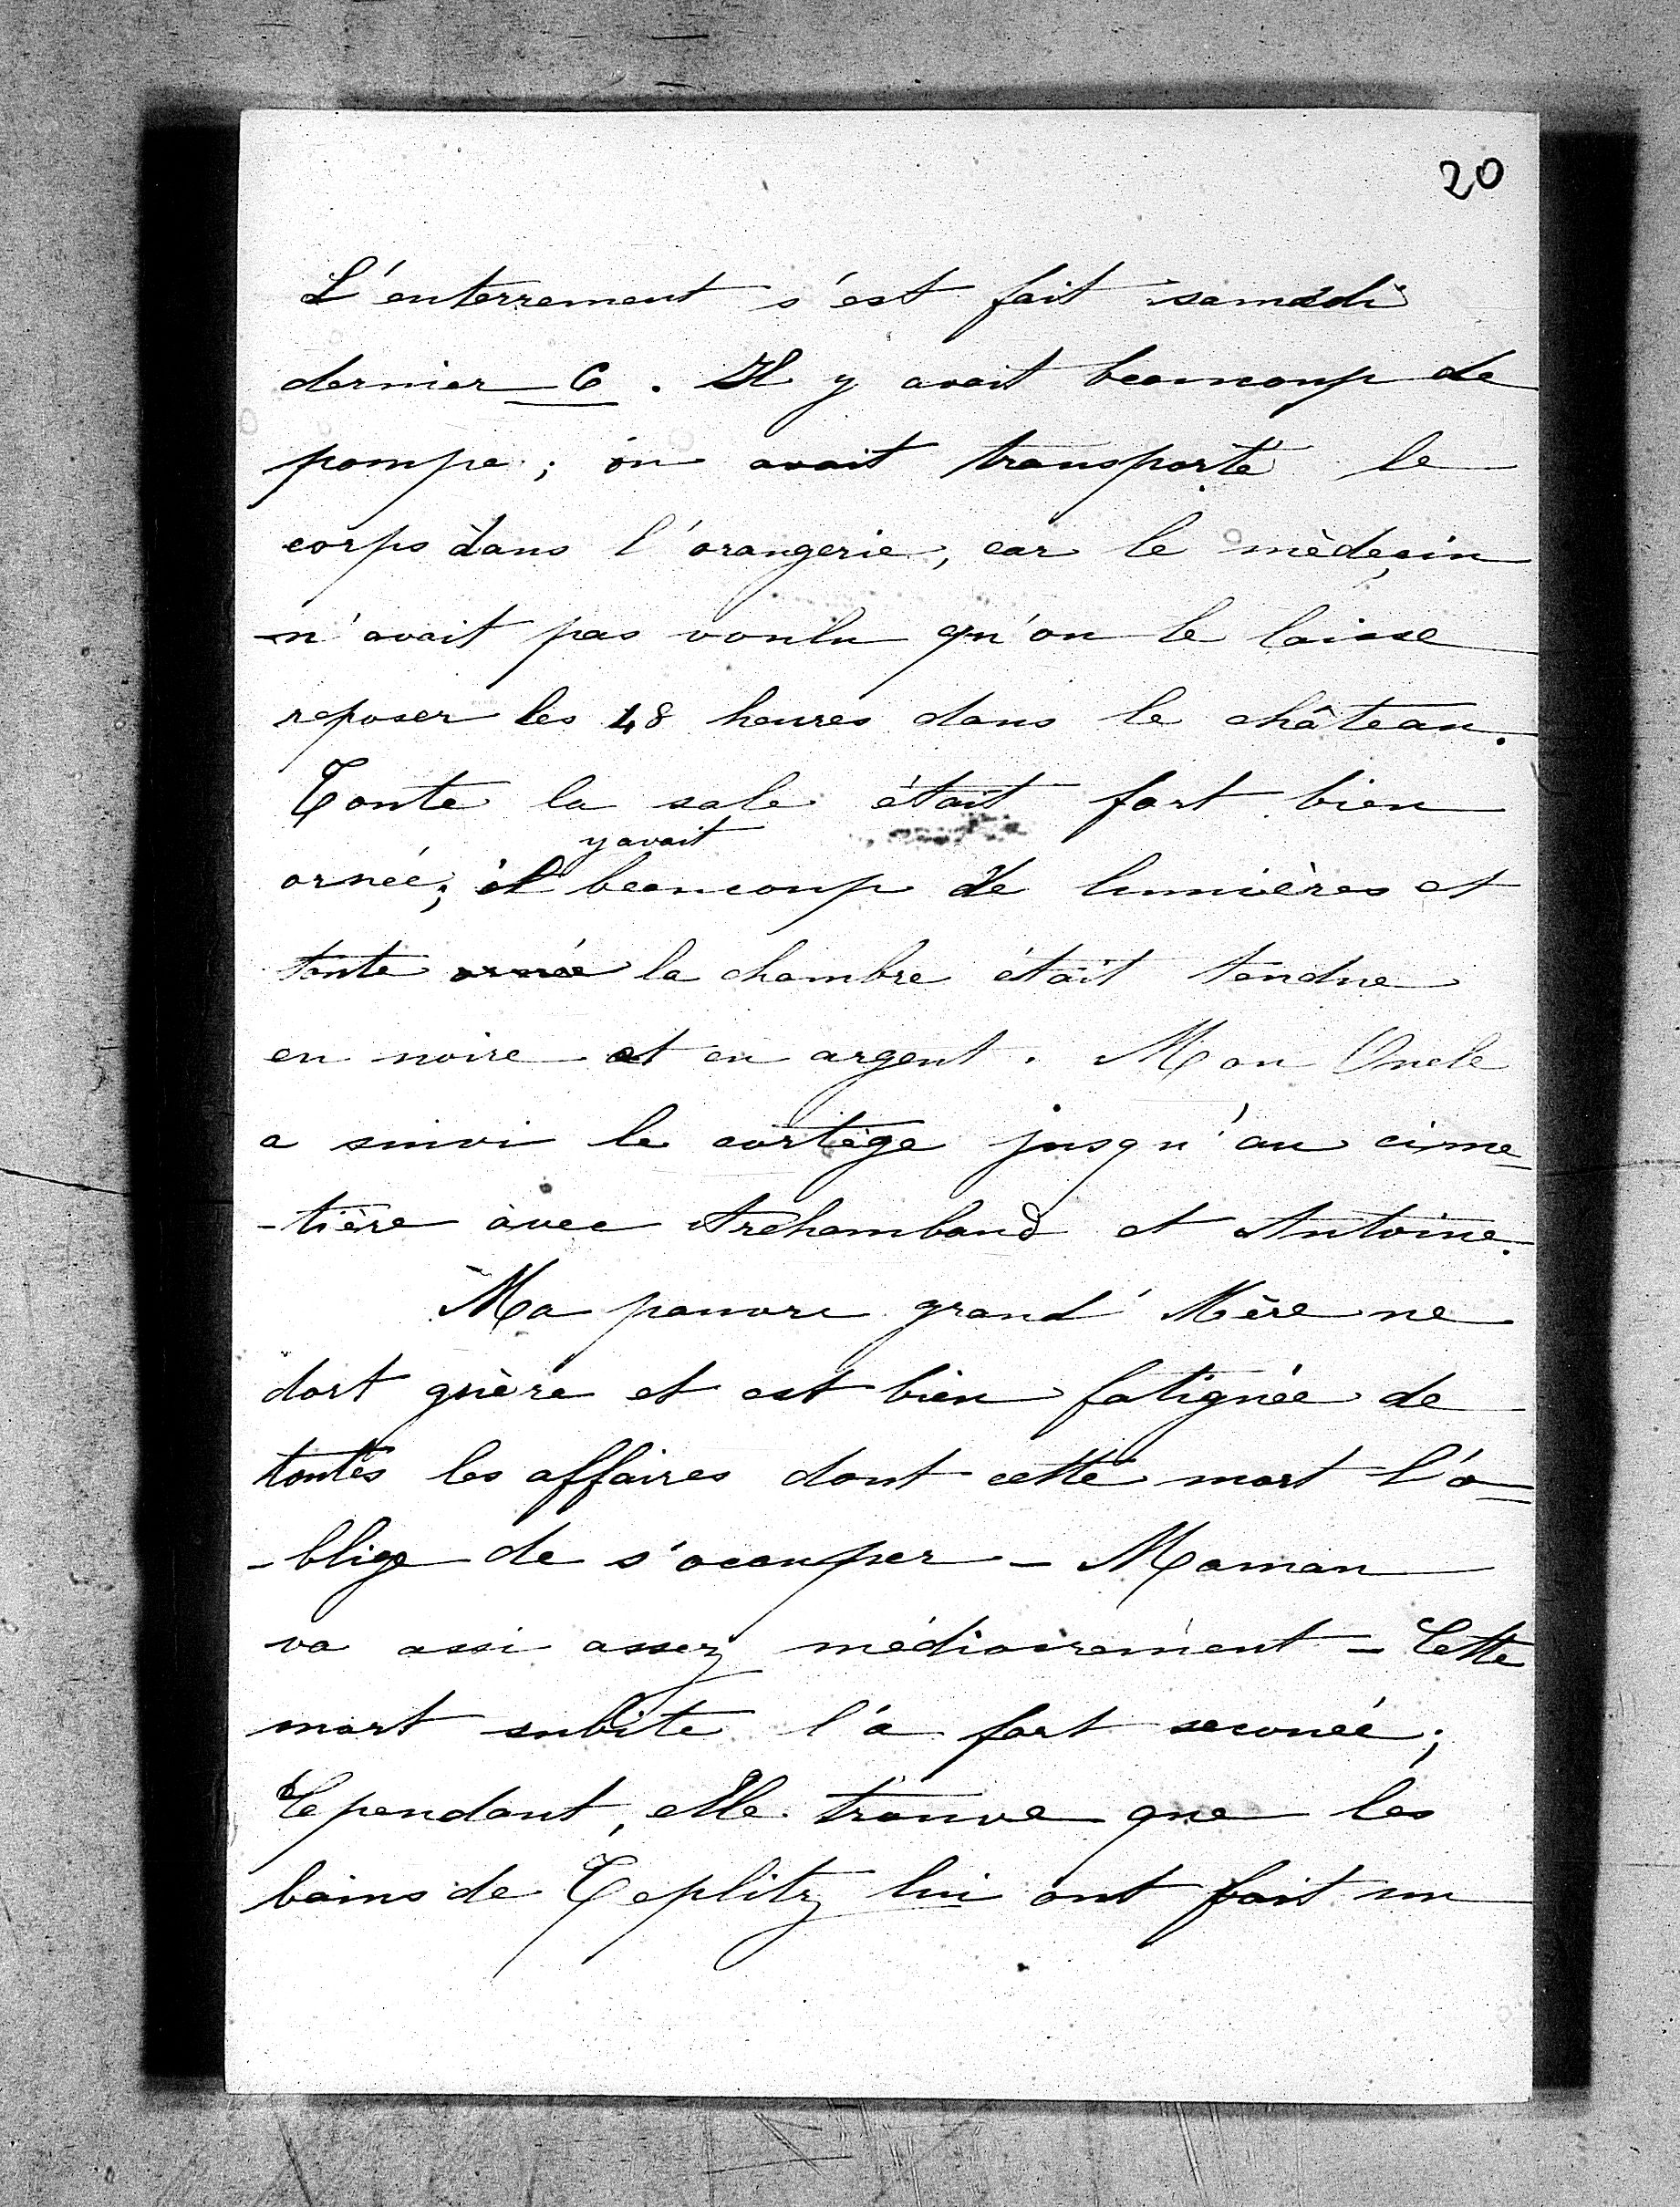 20
L'enterrement s'est fait samedi
dernier 6. Il y avait beaucoup de
pompe; on avait transporté le
corps dans l'orangerie, car le mèdecin
n'avait pas voulu qu'on le laisse
reposer les 48 heures dans le château.
Toute la sale était fort bien
y avait
ornée; il beaucoup de lumières et
toute ornée la chambre était tendue
en noire et en argent. Mon Oncle
a suivi le cortège jusqu'au cime-
-tière avec Archambaud et Antoine.
Ma pauvre grand' Mère ne
dort guère et est bien fatiguée de
toutes les affaires dont cette mort l'o-
-blige de s'occuper - Maman
va assi assez médiocrement - Cette
mort subite l'a fort secouée;
Cependant, elle trouve que les
bains de Teplitz lui ont fait un